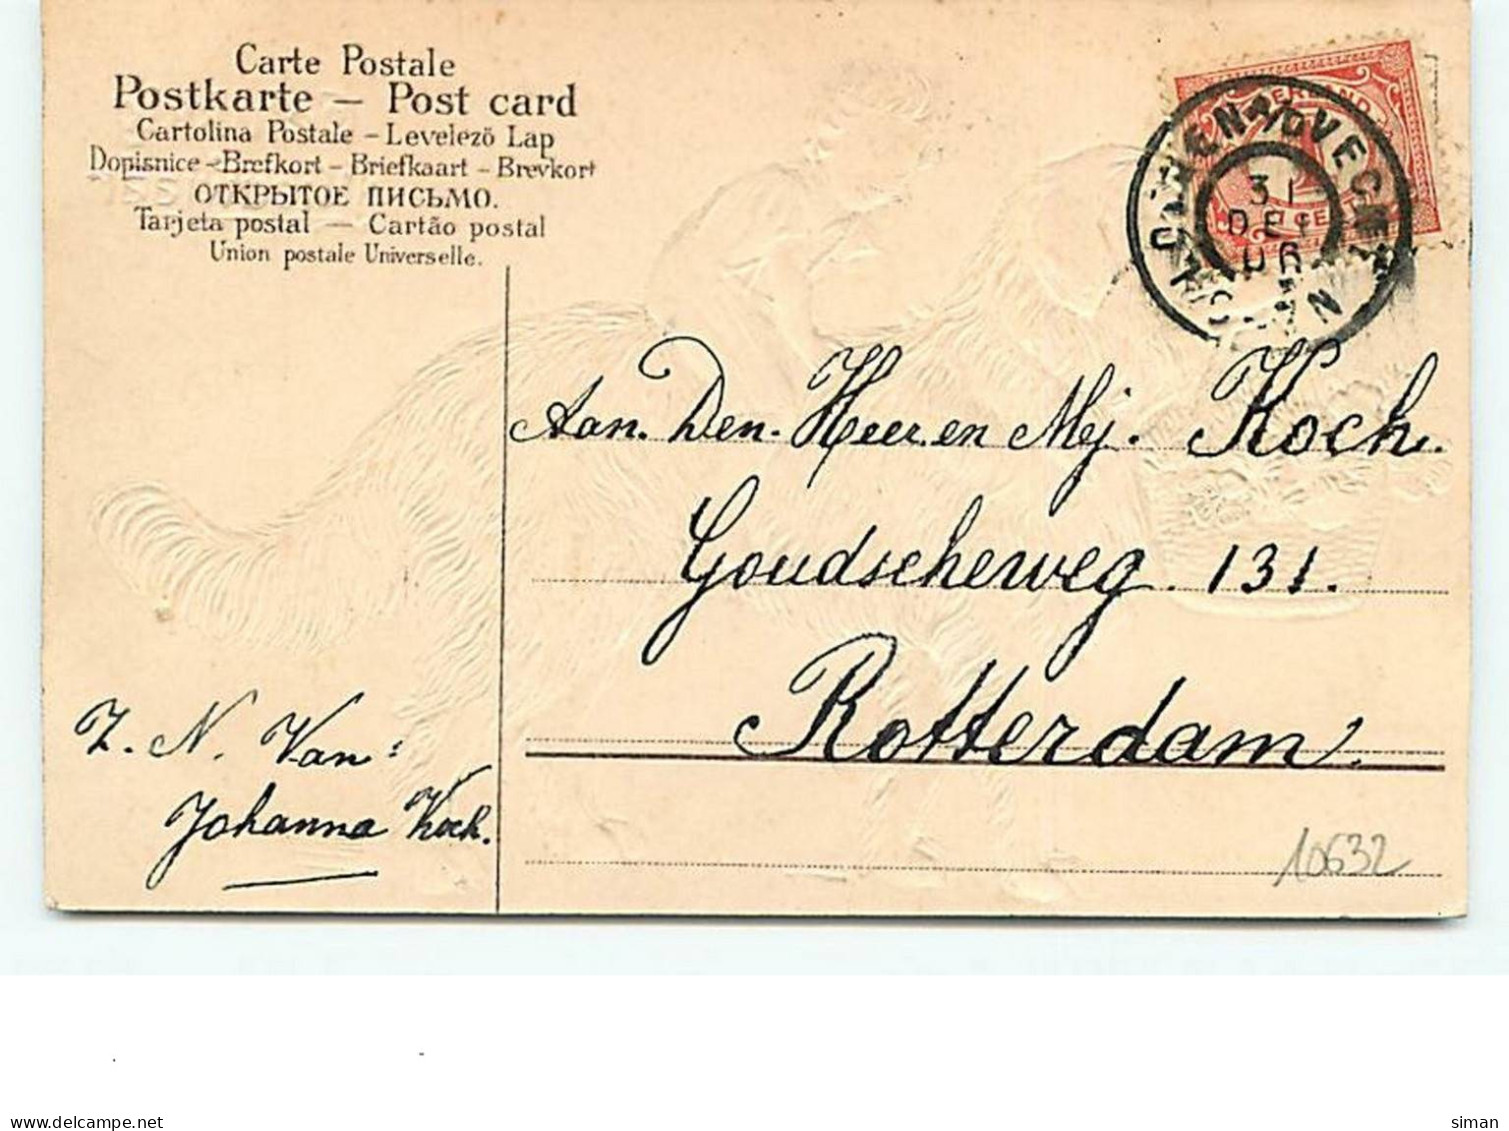 Carte Postale
Postkarte – Post card
Cartolina Postale – Levelező Lap
Dopisnice – Brefkort – Briefkaart – Brevkort
ОТКРЫТОЕ ПИСЬМО.
Tarjeta postal — Cartão postal
Union postale Universelle.
31
DEC
06
Aan. Den. Heer. en Mej. Koch.
Goudscheweg. 131.
Rotterdam.
Z. N. Van:
Johanna Koch.
10632
delcampe.net
siman